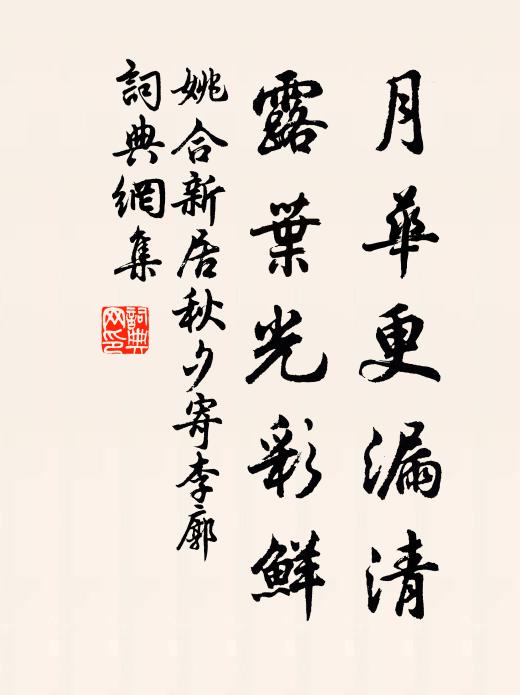 月華更漏清
露葉光彩鮮
姚合新居秋夕寄李廓
詞典網集
詞典
网印